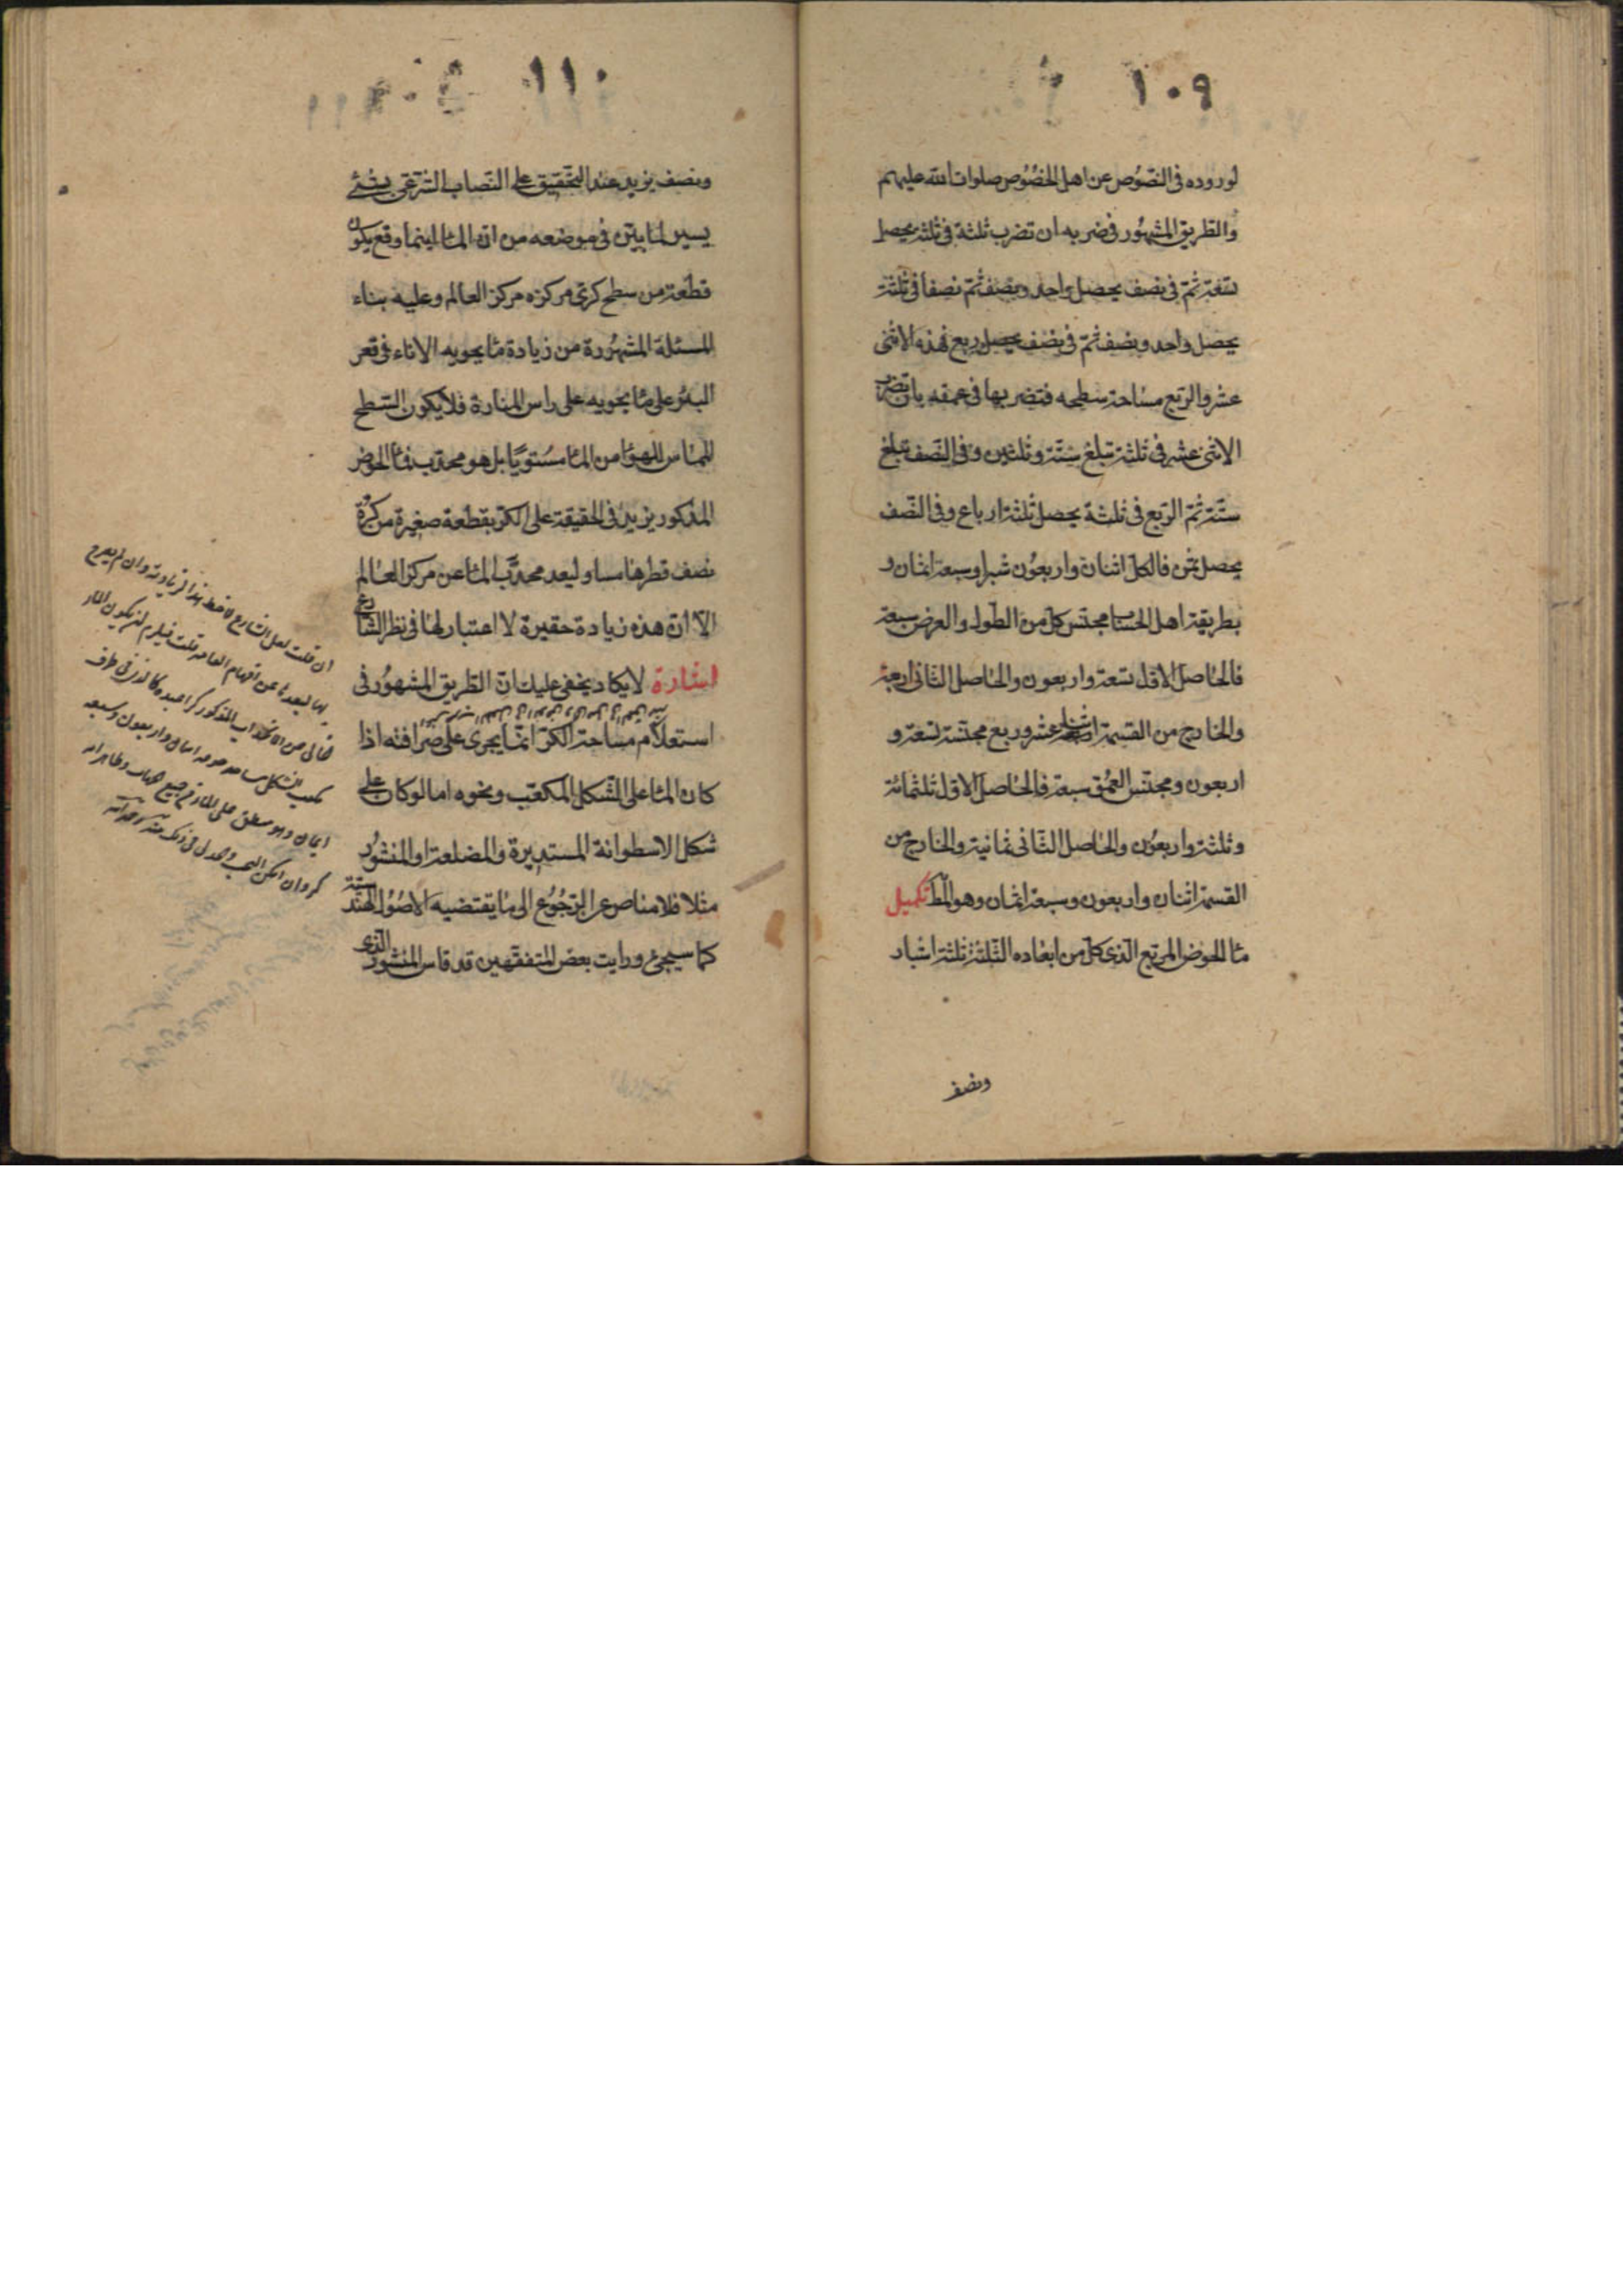 ١٠٩
لوروده فى النصوص عن اهل الخصوص صلوات الله عليهم
والطريق المشهور فى ضربه ان تضرب ثلثة فى ثلثة يحصل
تسعة ثم فى نصف يحصل واحد ونصف ثم نصفا فى ثلثة
يحصل واحد ونصف ثم فى نصف يحصل ربع فهذه الاثنى
عشر والربع مساحة سطحه فتضربها فى عمقه بان تضرب
الاثنى عشر فى ثلثة تبلغ ستة وثلثين وفى النصف تبلغ
ستة ثم الربع فى ثلثة يحصل ثلثة ارباع وفى النصف
يحصل ثمن فالكل اثنان واربعون شبرا وسبعة اثمان و
بطريقة اهل الحساب مجنس كل من الطول والعرض سبعة
فالحاصل الاول تسعة واربعون والحاصل الثانى اربعة
والخارج من القسمة اثنا عشر وربع مجنسة تسعة و
اربعون ومجنس العمق سبعة فالحاصل الاول ثلثمائة
وثلثة واربعون والحاصل الثانى ثمانية والخارج من
القسمة اثنان واربعون وسبعة اثمان وهو المط تكميل
ماء الحوض المربع الذى كل من ابعاده الثلثة ثلثة اشبار
ونصف
١١٠
ونصف يزيد عند التحقيق على النصاب الشرعى بشئ
يسير لما بين فى موضعه من ان الماء اينما وقع يكون
قطعة من سطح كرى مركزه مركز العالم وعليه بناء
المسئلة المشهورة من زيادة ما يحويه الاناء فى قعر
البئر على ما يحويه على راس المنارة فلا يكون السطح
المماس للهواء من الماء مستويا بل هو محدب فماء الحوض
المذكور يزيد فى الحقيقة على الكر بقطعة صغيرة من كرة
نصف قطرها مساو لبعد محدب الماء عن مركز العالم
الا ان هذه زيادة حقيرة لا اعتبار لها فى نظر الشارع
اشارة لا يكاد يخفى عليك ان الطريق المشهور فى
استعلام مساحة الكر انما يجرى على صرافته اذا
كان الماء على الشكل المكعب ونحوه اما لو كان على
شكل الاسطوانة المستديرة والمضلعة او المنشور
مثلا فلا مناص عن الرجوع الى ما يقتضيه الاصول الهندسية
كما سيجئ ورايت بعض المتفقهين قد قاس المنشور الذى
ان قلت لعل الشارع لاحظ هذا الزيادة وان لم يصرح
بها لبعدها عن افهام العامة قلت فيلزم ان يكون الماء